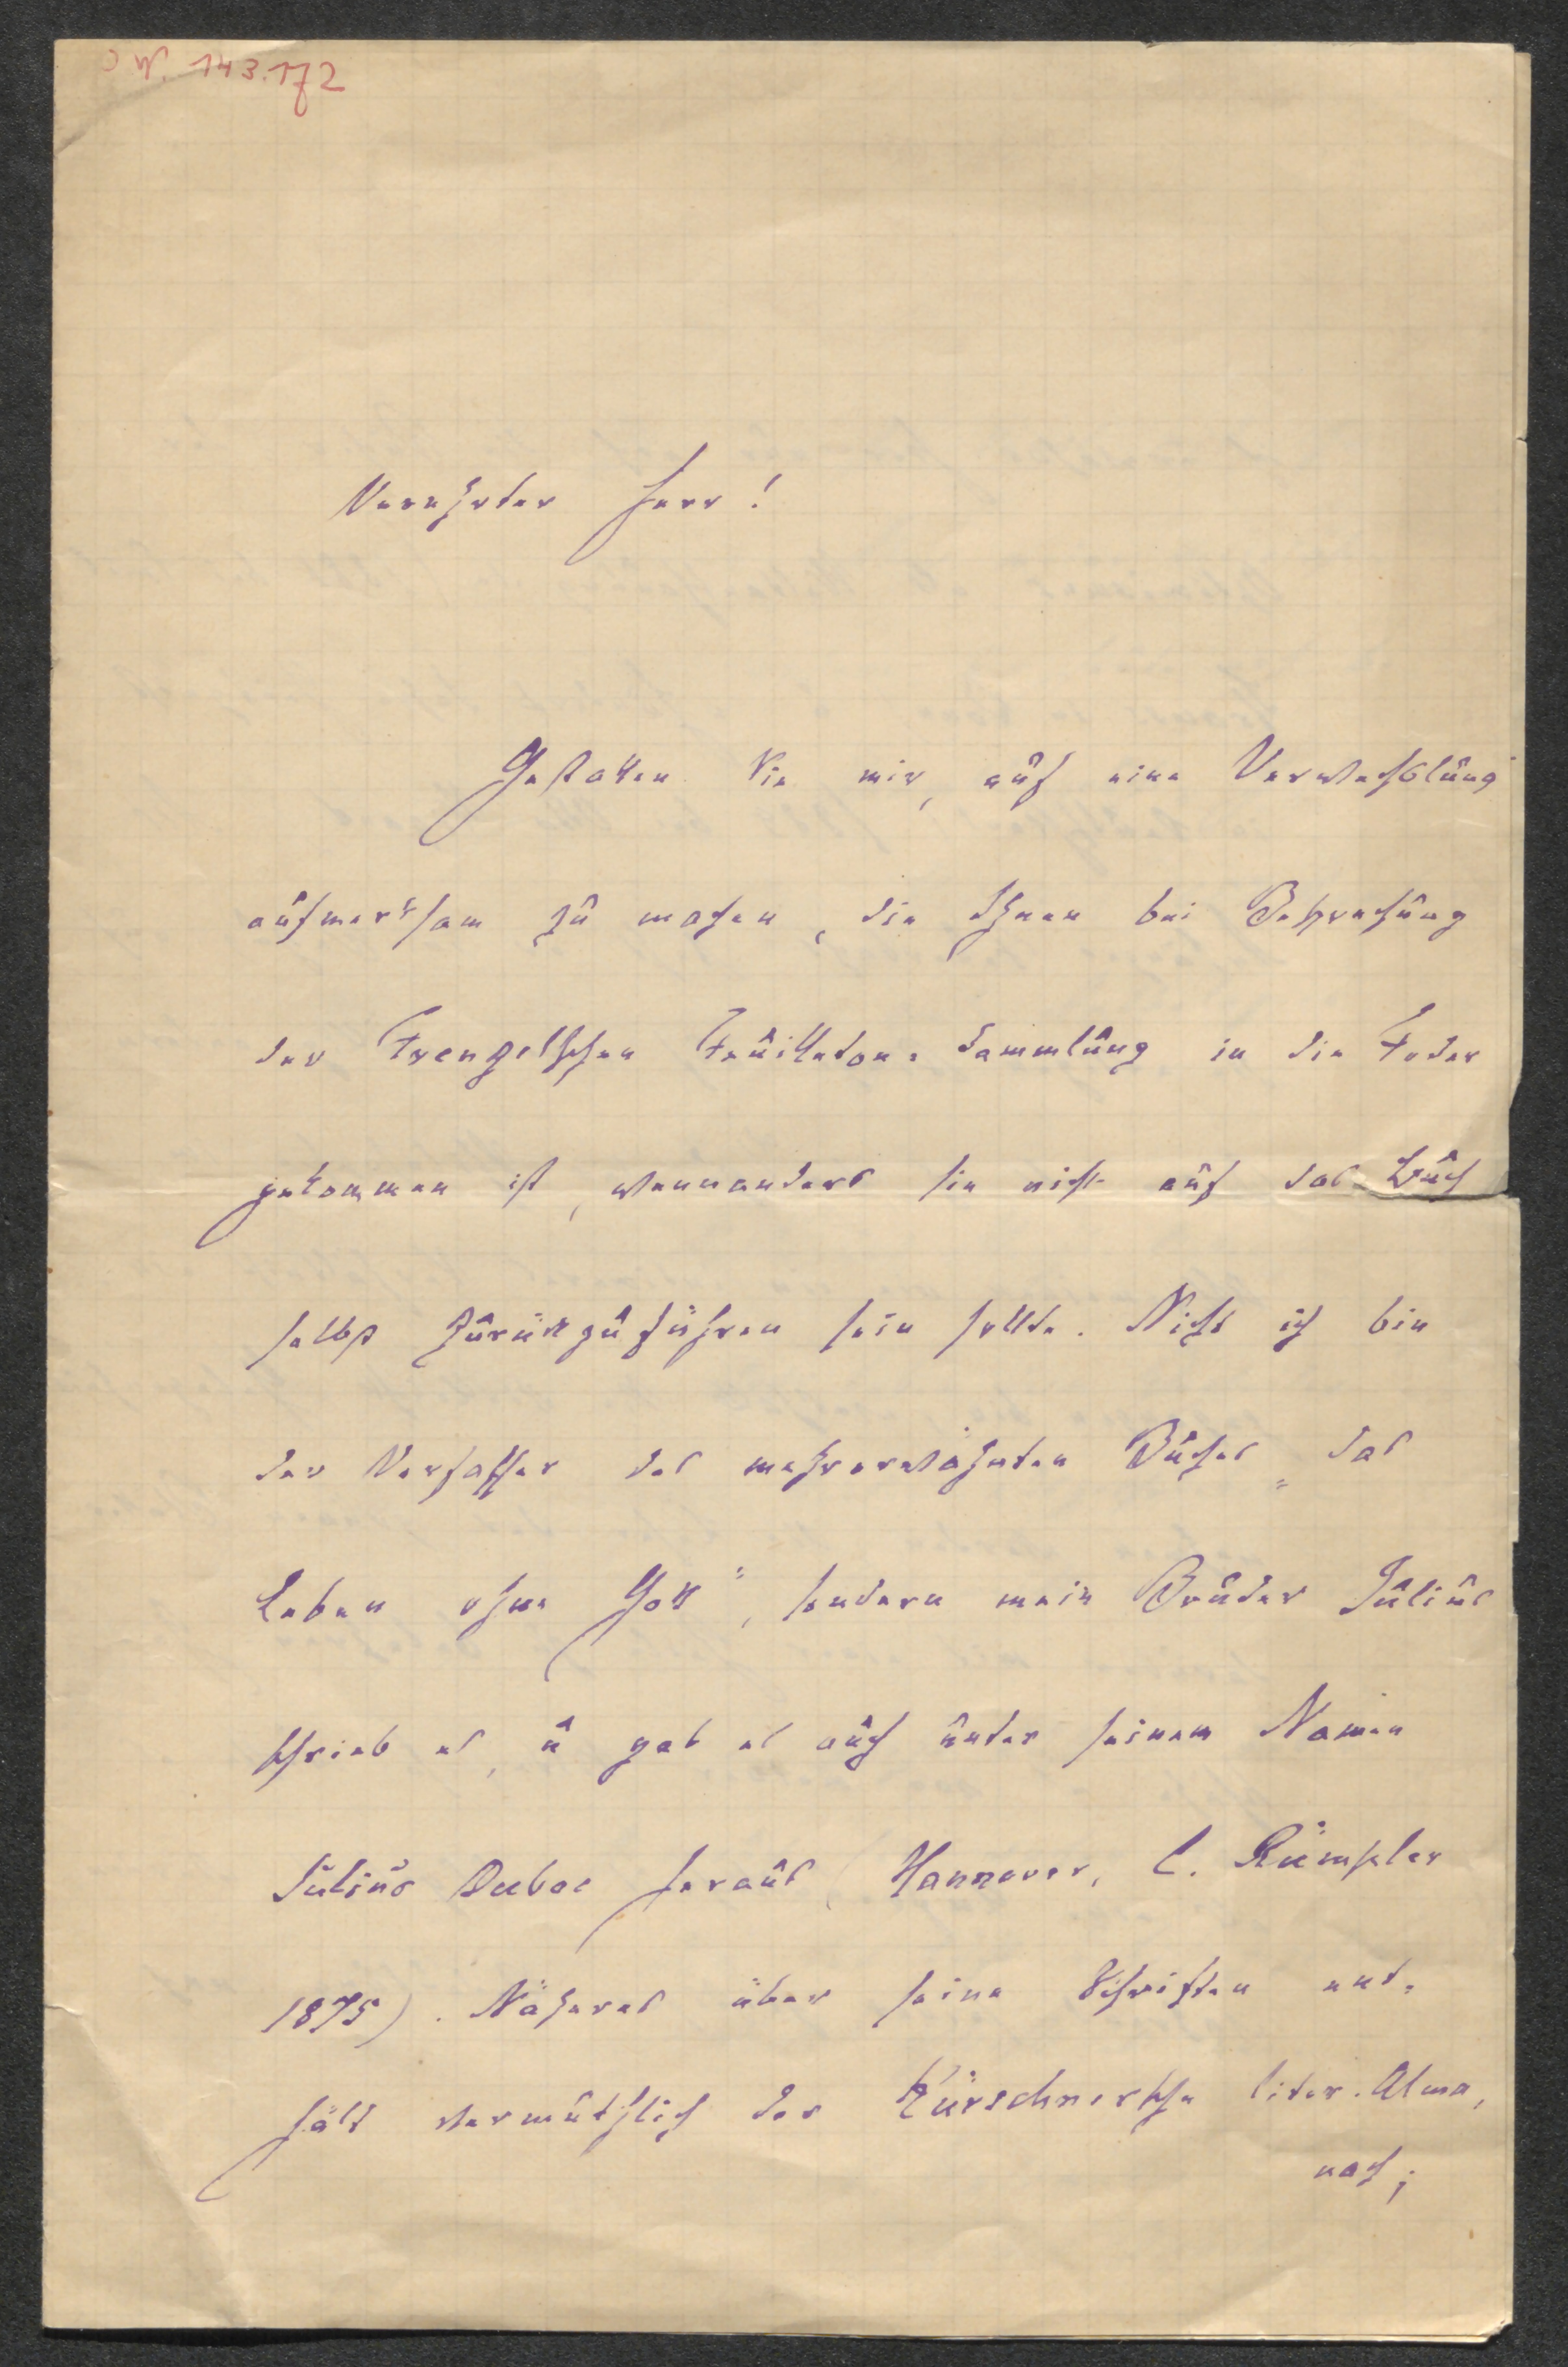 J.N. 143.172
Verehrter Herr!
Gestatten Sie mir, auf eine Verwechslung
aufmerksam zu machen, die Ihnen bei Besprechung
der Frenzelschen Feuilleton-Sammlung in die Feder
gekommen ist, wennanders sie nicht auf das Buch
selbst zurückzuführen sein sollte. Nicht ich bin
der Verfasser des mehrerwähnten Buches „das
Leben ohne Gott“, sondern mein Bruder Julius
schrieb es, u gab es auch unter seinem Namen
Julius Duboc heraus (Hannover, C. Rümpler
1875). Näheres über seine Schriften ent-
hält vermuthlich der Kürschnersche liter. Alma-
nach;